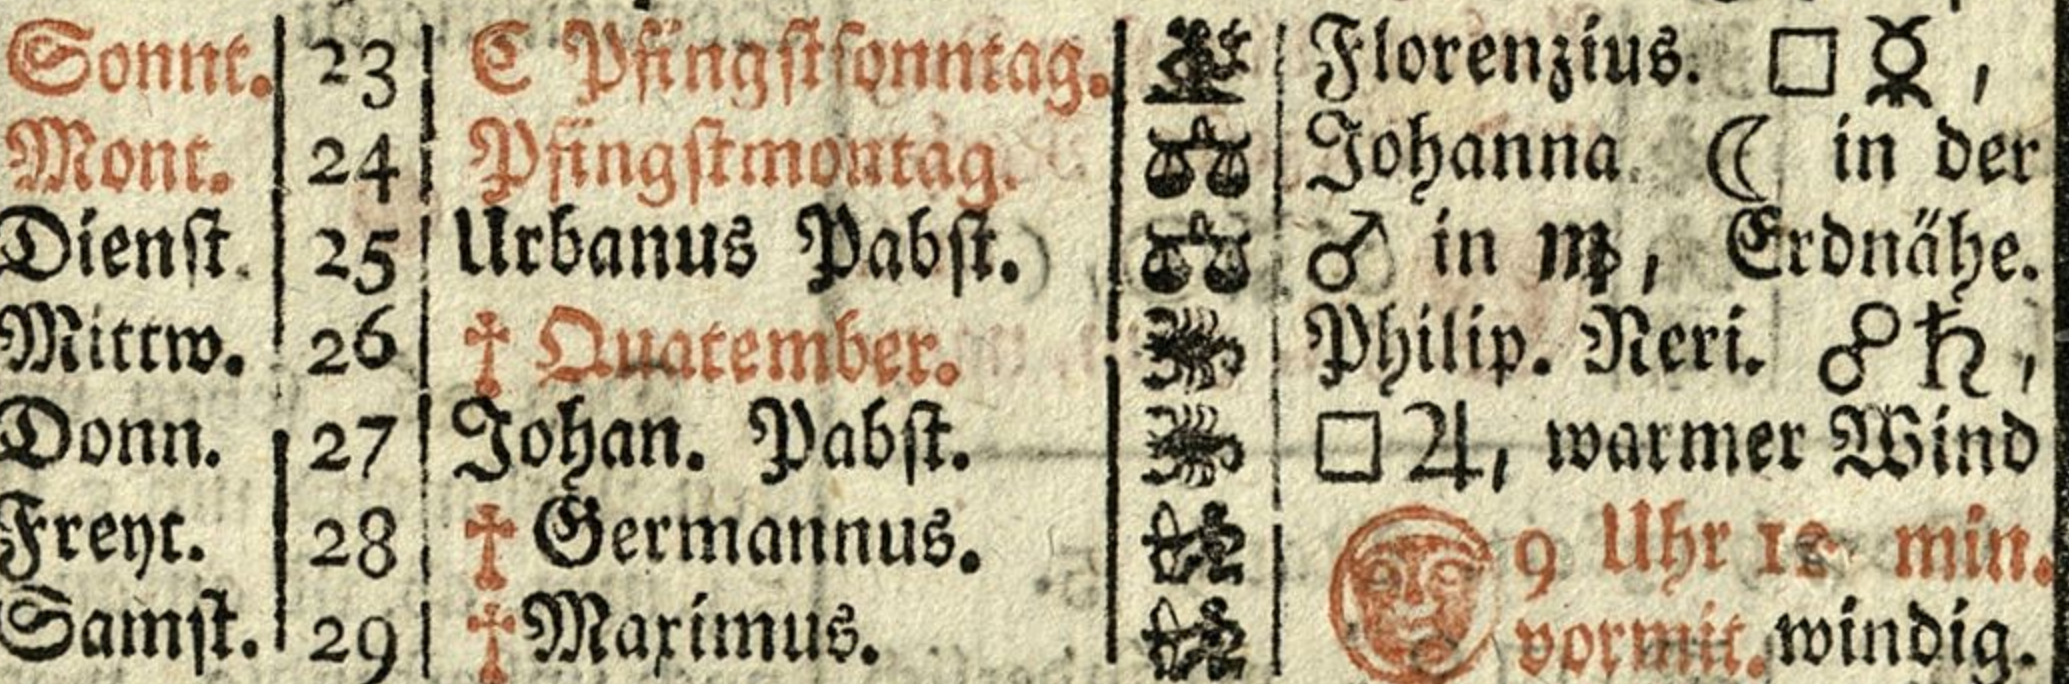 Sonnt. 23 C Pfingstsonntag. Florenzius. □ ☿,
Mont. 24 Pfingstmontag. ♎ Johanna. ☾ in der
Dienst. 25 Urbanus Pabst. ♎ ♂ in ♍, Erdnähe.
Mittw. 26 † Quatember. ♏ Philip. Neri. ☍ ♄,
Donn. 27 Johan. Pabst. ♏ □ ♃, warmer Wind
Freyt. 28 † Germannus. ♐ 9 Uhr min.
Samst. 29 † Maximus. ♐ vormit. windig.